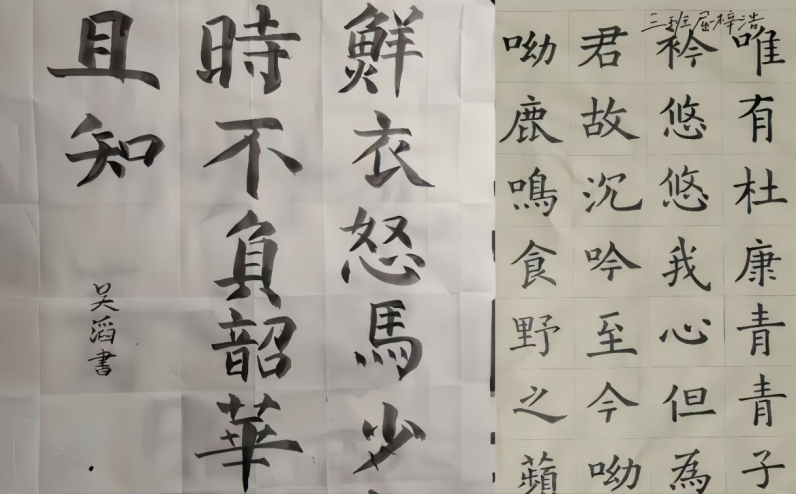 鮮衣怒馬少
時不負韶華
且知
吴滔書
三班屈梓浩
唯有杜康青青子
衿悠悠我心但為
君故沉吟至今呦
呦鹿鳴食野之蘋